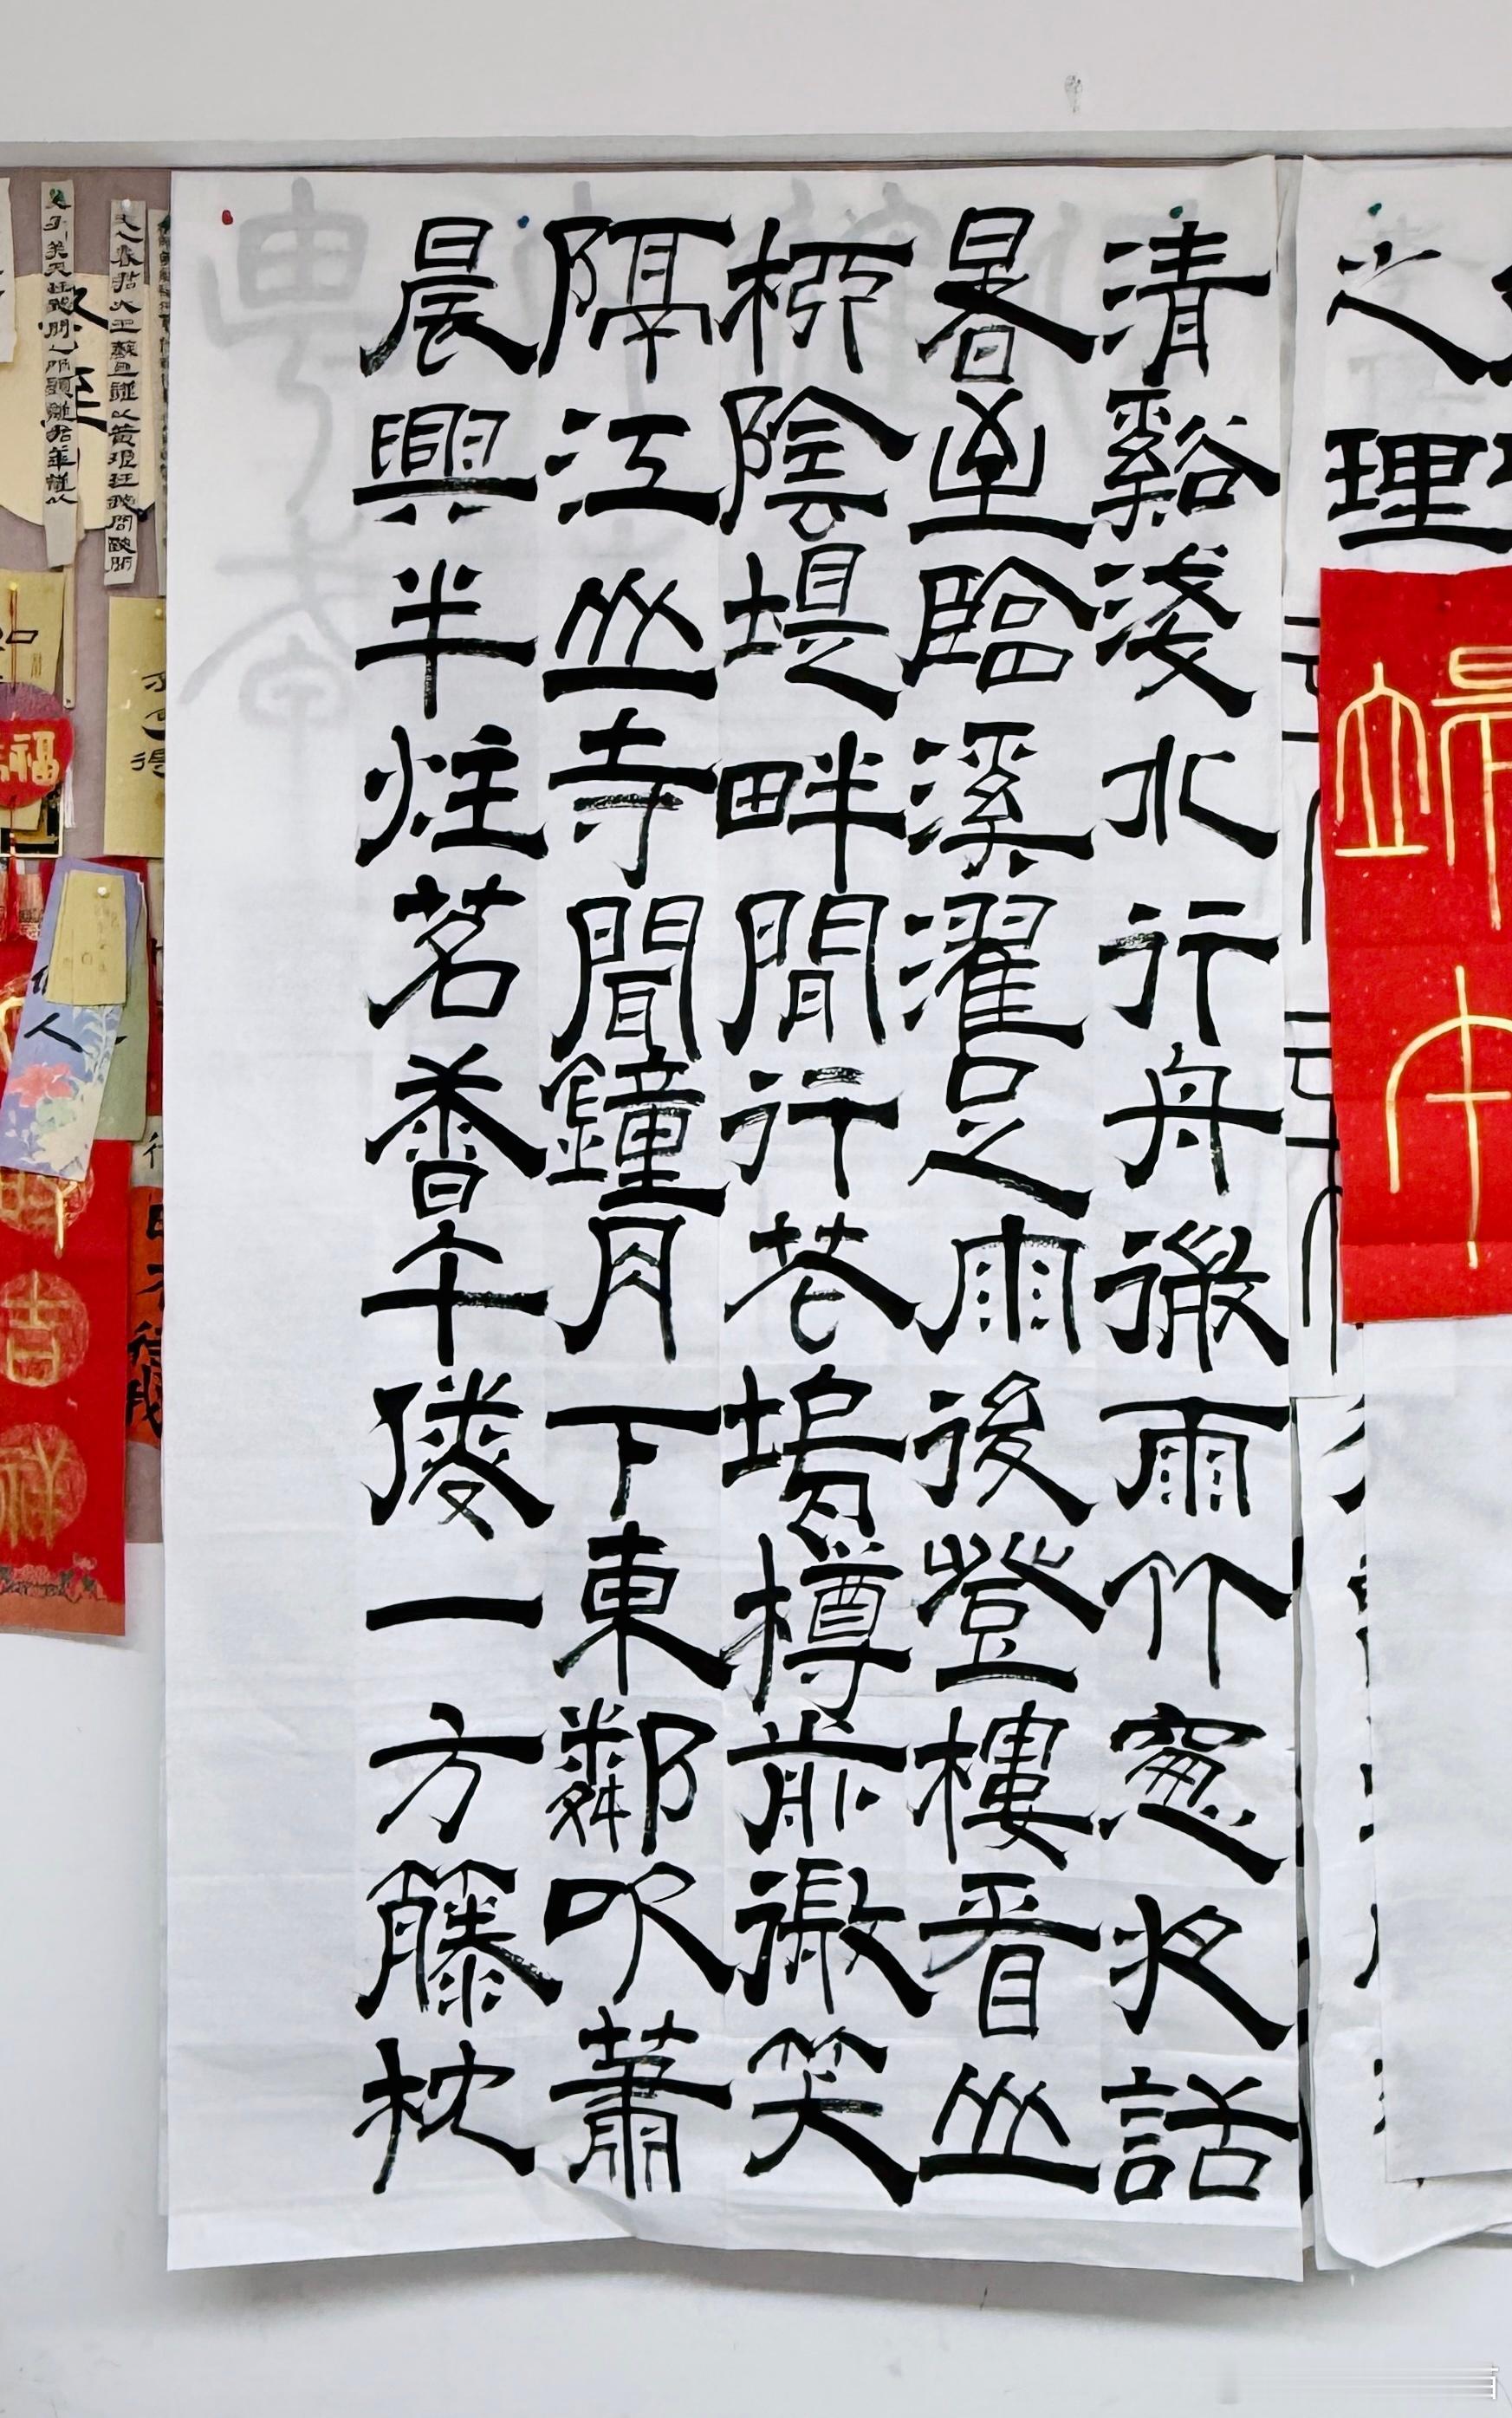 之理
端午
清谿淺水行舟微雨竹窻夜話
暑至臨溪濯足雨後登樓看山
柳陰堤畔閑行花塢樽前微笑
隔江山寺聞鐘月下東鄰吹蕭
晨興半炷茗香午倦一方籐枕
福
吉祥